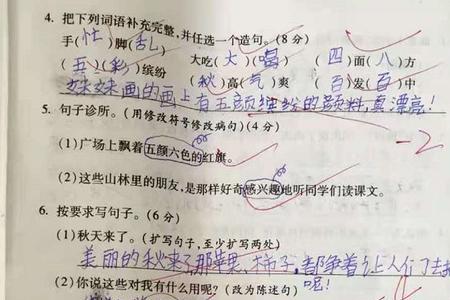 4. 把下列词语补充完整,并任选一个造句。(8分)
手(忙)脚(乱) 大吃(大)(喝) (四)面(八)方
(五)(彩)缤纷 (秋)高(气)爽 (百)发(百)中
妹妹画的画上有五颜缤纷的颜料,真漂亮!
-2
5. 句子诊所。(用修改符号修改病句)(4分)
(1)广场上飘着五颜六色的红旗。
(2)这些山林里的朋友,是那样好奇感兴趣地听同学们读课文。
6. 按要求写句子。(6分)
(1)秋天来了。(扩写句子,至少扩写两处)
美丽的秋来了,那苹果、柿子,都争着让人们去
(2)你说这些对我有什么用呢?(改为陈述句) 呢!